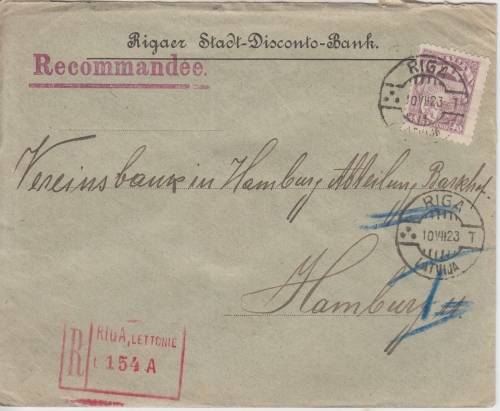 Rigaer Stadt-Disconto-Bank.
Recommandée.
RIGA
10 VII 23 T
Vereinsbank in Hamburg Abteilung Barkhof.
RIGA
10 VII 23 T
LATVIJA
Hamburg
R
RIGA, LETTONIE
154 A